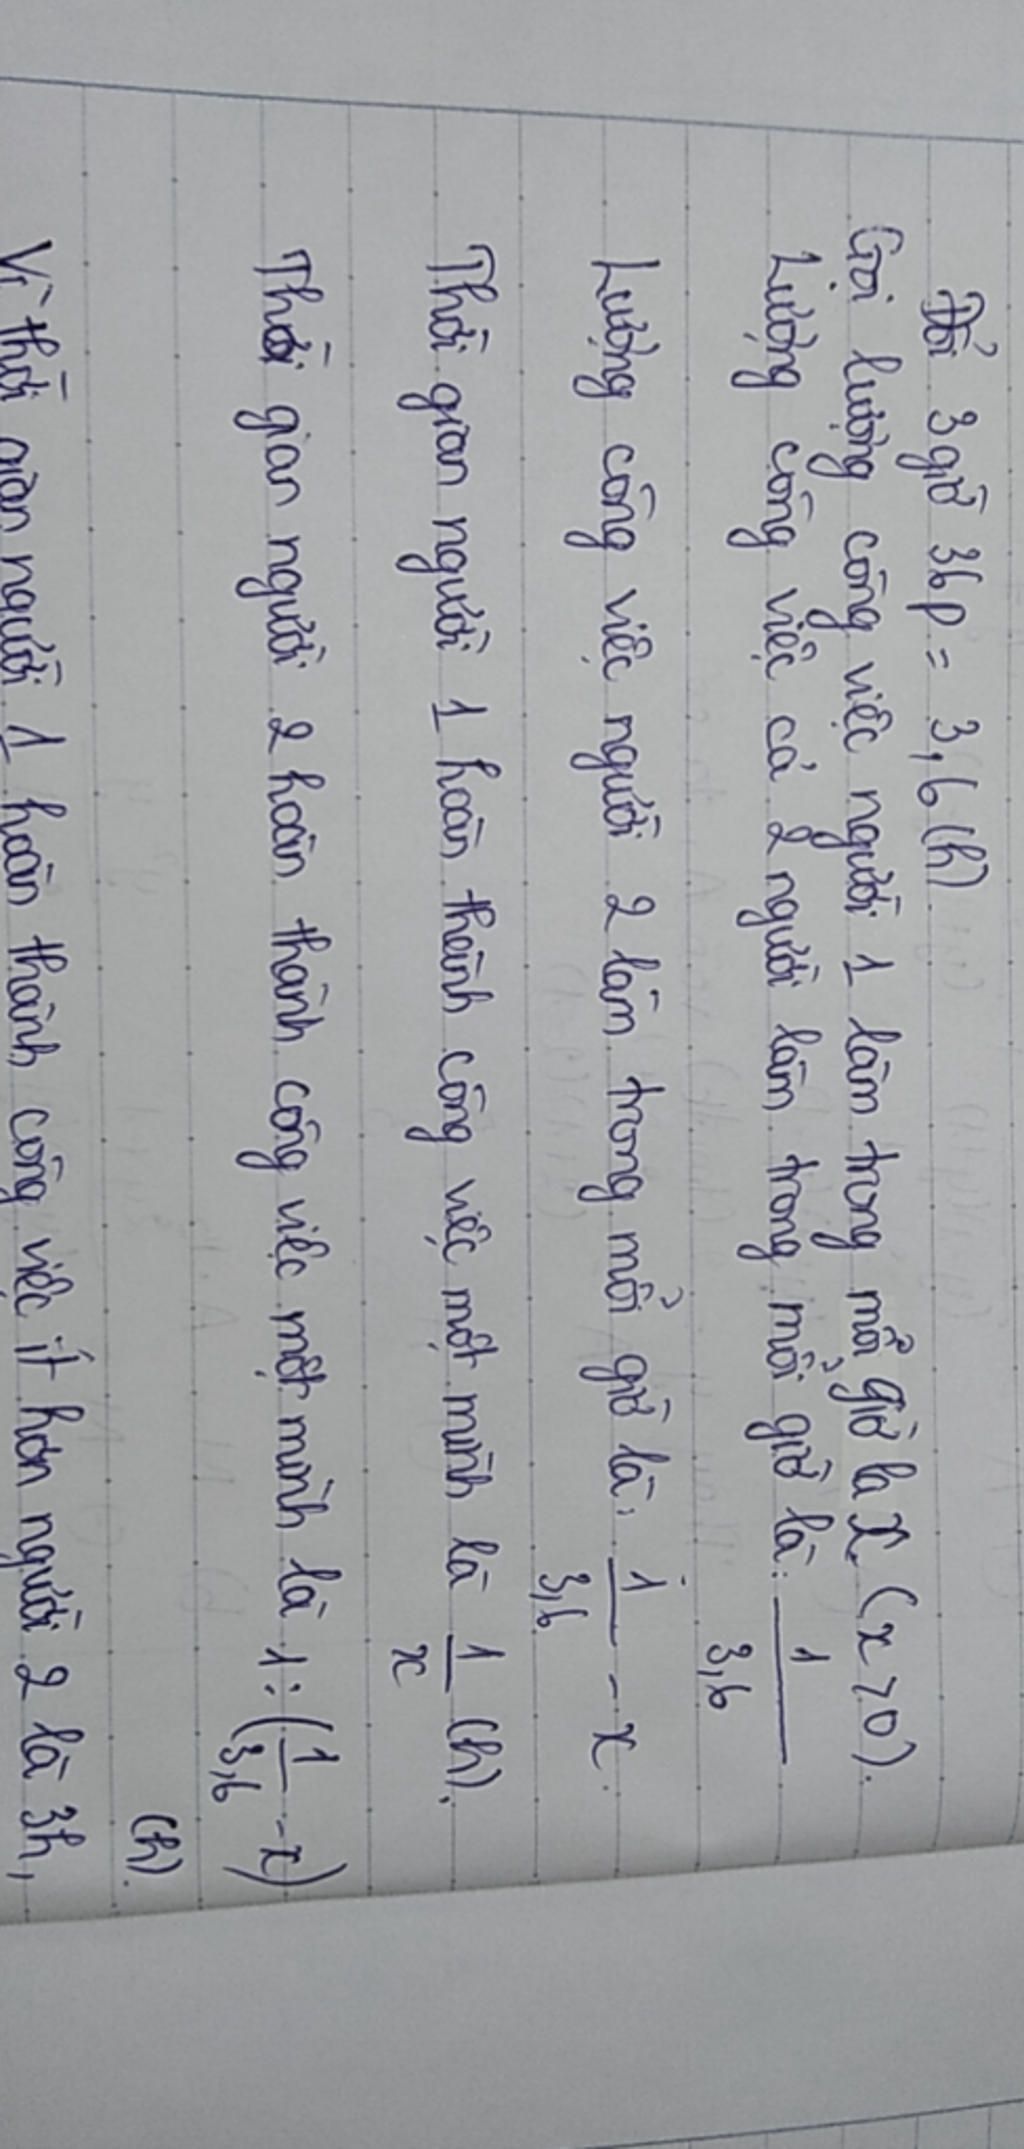 Đổi 3giờ 36p = 3,6(h).
Gọi lượng công việc người 1 làm trong mỗi giờ là x (x > 0).
Lượng công việc cả 2 người làm trong mỗi giờ là: 1/3,6
Lượng công việc người 2 làm trong mỗi giờ là: 1/3,6 - x.
Thời gian người 1 hoàn thành công việc một mình là 1/x (h).
Thời gian người 2 hoàn thành công việc một mình là 1:(1/3,6 - x)
(h).
Vì thời gian người 1 hoàn thành công việc ít hơn người 2 là 3h,